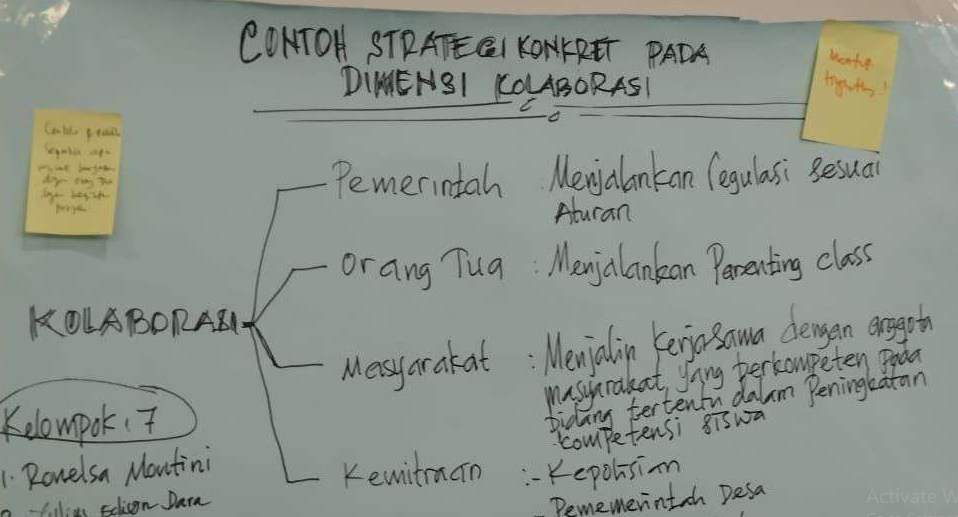 CONTOH STRATEGI KONKRET PADA
DIMENSI KOLABORASI
KOLABORASI
Pemerintah : Menjalankan regulasi sesuai
Aturan
Orang Tua : Menjalankan Parenting class
Masyarakat : Menjalin kerjasama dengan anggota
masyarakat yang berkompeten pada
bidang tertentu dalam Peningkatan
kompetensi siswa
Kemitraan :- Kepolisian
- Pememerintah Desa
Kelompok : 7
1. Ronelsa Montini
Edison Dara
Activate W